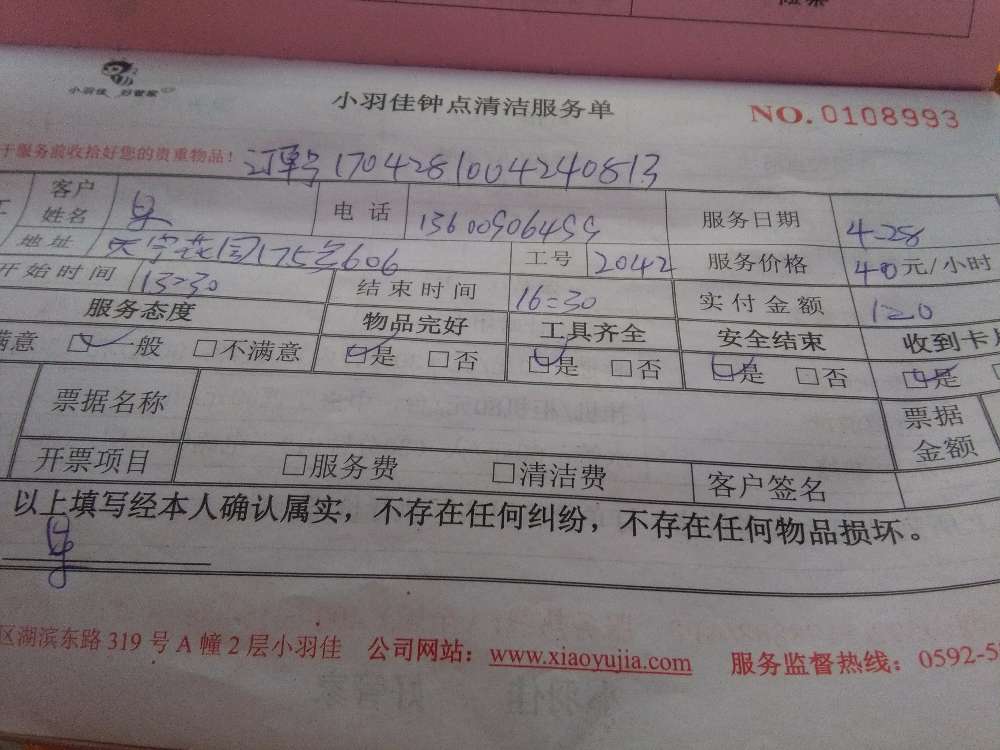 小羽佳 好管家
小羽佳钟点清洁服务单 NO.0108993
于服务前收拾好您的贵重物品! 订单号1704281004240813
客户姓名 电话 服务日期 4-28
地址 175号606 工号 2042 服务价格 40元/小时
开始时间 13:30 结束时间 16:30 实付金额 120
服务态度 物品完好 工具齐全 安全结束 收到卡
满意 □一般 □不满意 □是 □否 □是 □否 □是 □否 □是
票据名称 票据金额
开票项目 □服务费 □清洁费 客户签名
以上填写经本人确认属实，不存在任何纠纷，不存在任何物品损坏。
区湖滨东路 319 号 A 幢 2 层小羽佳 公司网站：www.xiaoyujia.com 服务监督热线：0592-5